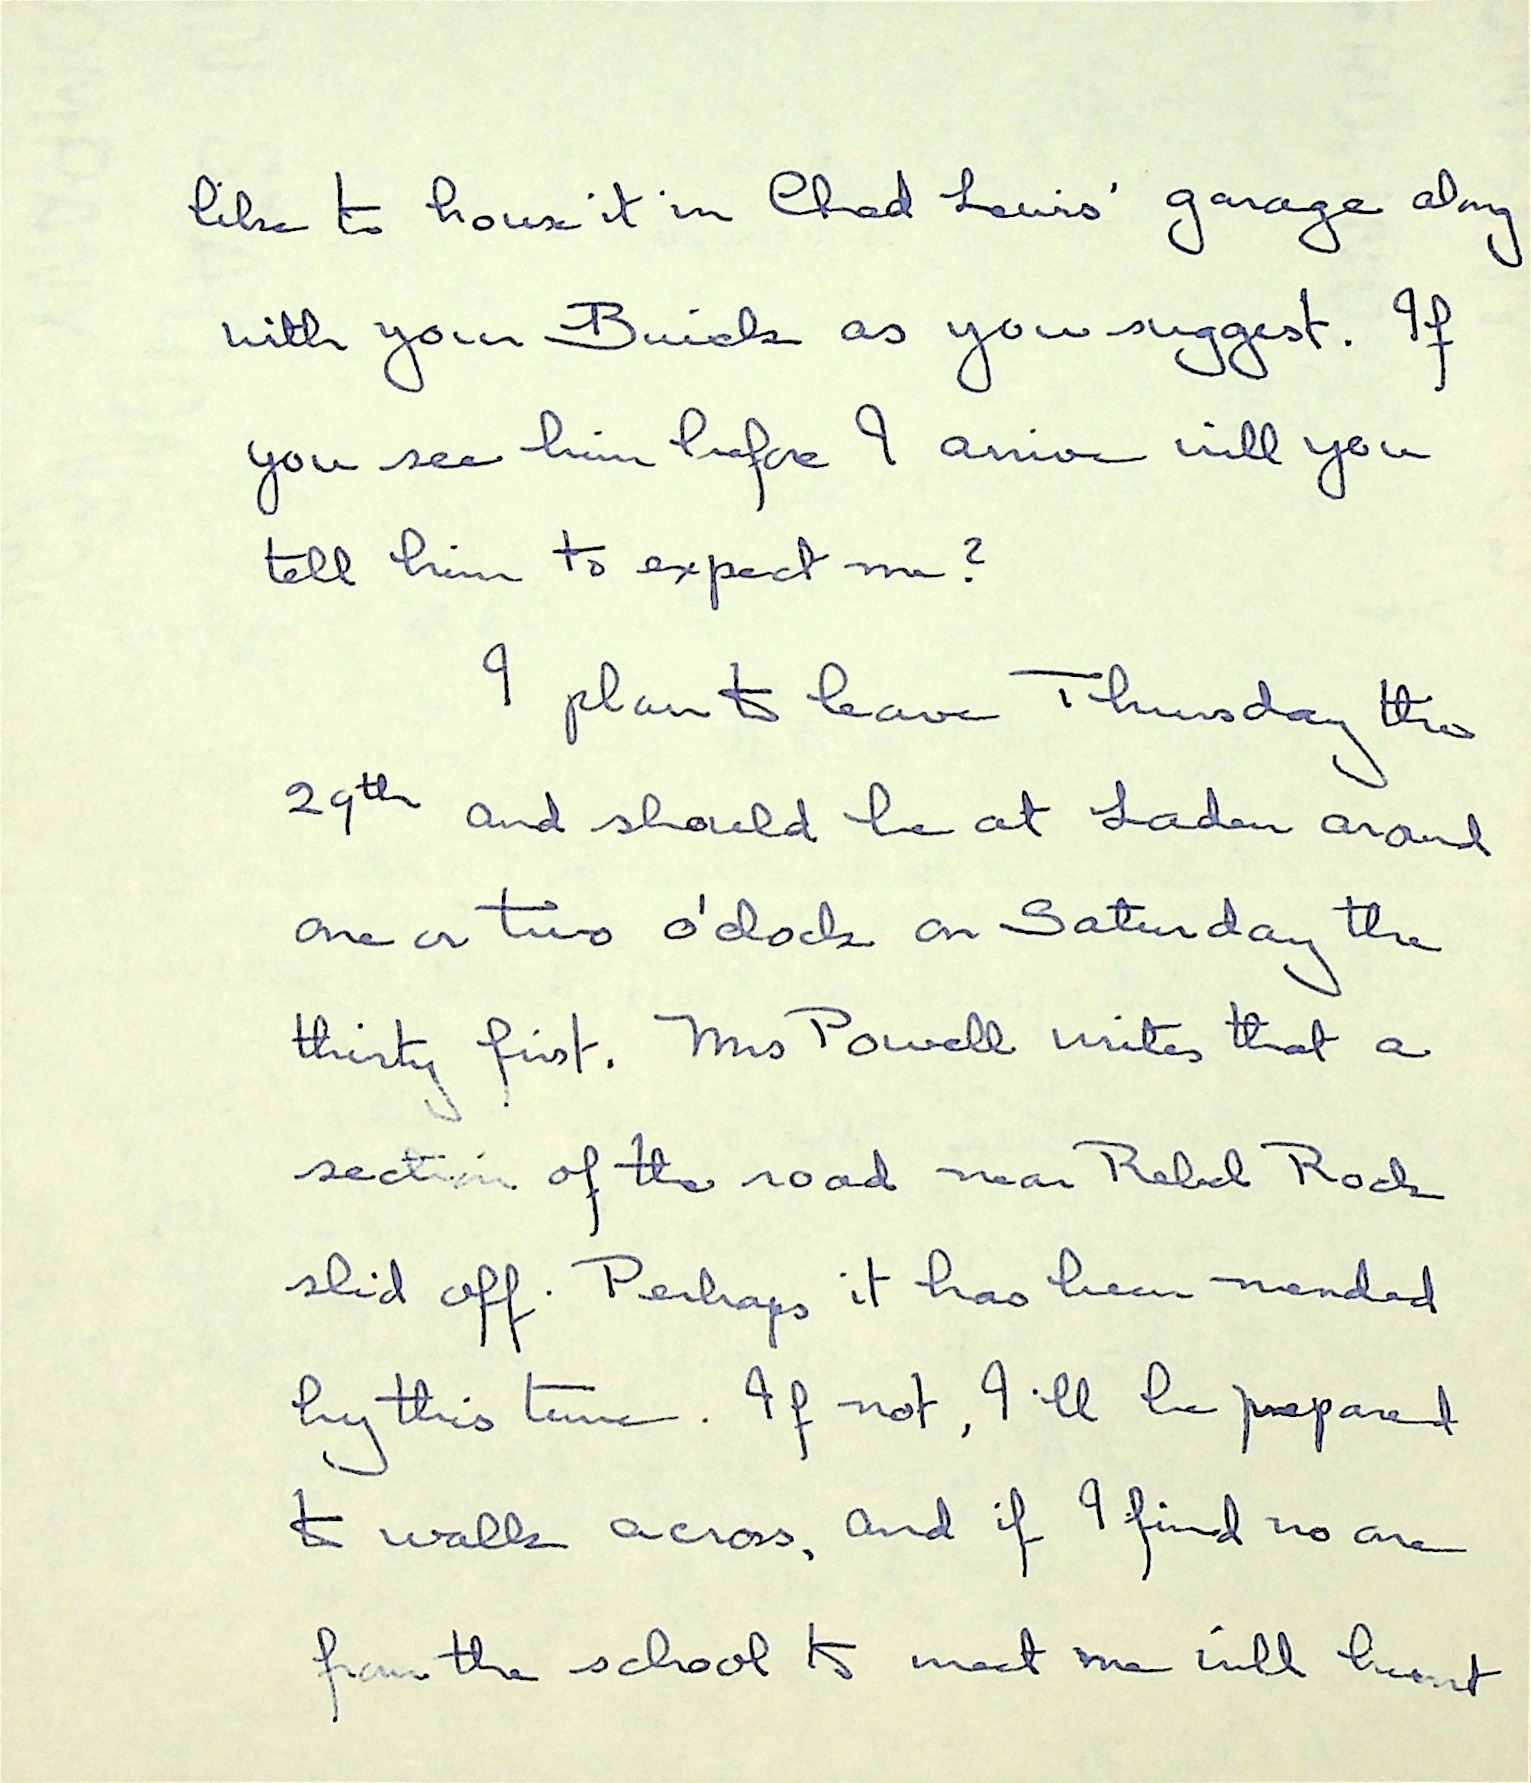 like to house it in Chad Lewis' garage along
with your Buick as you suggest. If
you see him before I arrive will you
tell him to expect me?
I plan to leave Thursday the
29th and should be at Laden around
one or two o'clock on Saturday the
thirty first. Mrs Powell writes that a
section of the road near Rebel Rock
slid off. Perhaps it has been mended
by this time. If not, I'll be prepared
to walk across, and if I find no one
from the school to meet me will hunt